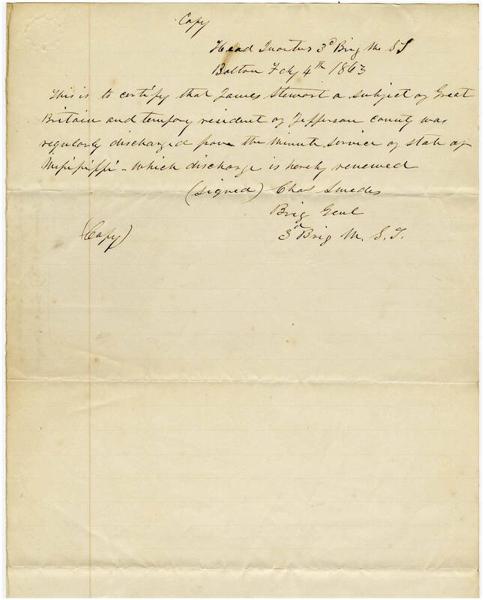 Copy
Head Quarters 3d Brig M. S T
Bolton Feby 4th 1863
This is to certify that James Stewart a subject of Great
Britain and tempory resident of Jefferson County was
regularly discharged from the minute service of state of
Mississippi - which discharge is hereby renewed
(signed) Chas Smedes
Brig Genl
(Copy)
3d Brig M. S. T.